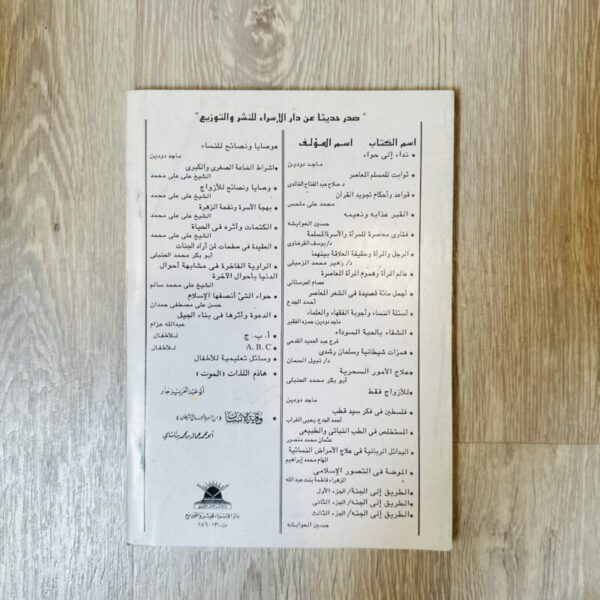 " صدر حديثا عن دار الإسراء للنشر والتوزيع "
اسم الكتاب اسم المؤلف
• نداء إلى حواء
ماجد دودين
• ثوابت للمسلم المعاصر
د. صلاح عبد الفتاح الخالدي
• قواعد وأحكام تجويد القرآن
محمد علي ملحس
• القبر عذابه ونعيمه
حسين العوايشه
• فتاوى معاصرة للمرأة والأسرة المسلمة
د/ يوسف القرضاوي
• الرجل والمرأة وحقيقة العلاقة بينهما
د/ زهير محمد الزميلي
• عالم المرأة وهموم المرأة المعاصرة
عصام الحرستاني
• أجمل مائة قصيدة في الشعر المعاصر
أحمد الجدع
• أسئلة النساء وأجوبة الفقهاء والعلماء
ماجد دودين، حمزه الفقير
• الشفاء بالحبة السوداء
فرج عبد الحميد القدحي
• همزات شيطانية وسلمان رشدي
د/ نبيل السمان
• علاج الأمور السحرية
أبو بكر محمد الحنبلي
• للأزواج فقط
ماجد دودين
• فلسطين في فكر سيد قطب
أحمد الجدع، يحيى الغراب
• المستخلص في الطب النباتي والطبيعي
عثمان محمد منصور
• البدائل الربانية في علاج الأمراض النسائية
الهام محمد إبراهيم
• الموضة في التصور الإسلامي
الزهراء فاطمة بنت عبد الله
• الطريق إلى الجنة/ الجزء الأول
• الطريق إلى الجنة/ الجزء الثاني
• الطريق إلى الجنة/ الجزء الثالث
حسين العوايشه
• وصايا ونصائح للنساء
ماجد دودين
• أشراط الساعة الصغرى والكبرى
الشيخ علي علي محمد
• وصايا ونصائح للأزواج
الشيخ علي علي محمد
• بهجة الأسرة ونفحة الزهرة
الشيخ علي علي محمد
• الكلمات وأثره في الحياة
الشيخ علي علي محمد
• العقيدة في صفحات لمن أراد الجنات
أبو بكر محمد الحنبلي
• الراوية الفاخرة في مشابهة أحوال
الدنيا بأحوال الآخرة
الشيخ علي محمد سالم
• حواء التي أنصفها الإسلام
حسن علي مصطفى حمدان
• الدعوة وأثرها في بناء الجيل
عبدالله عزام
• أ . ب . ج للأطفال
• A. B. C للأطفال
• وسائل تعليمية للأطفال
• هاذم اللذات (الموت)
• وقاية الإنسان
دار الإسراء للنشر والتوزيع